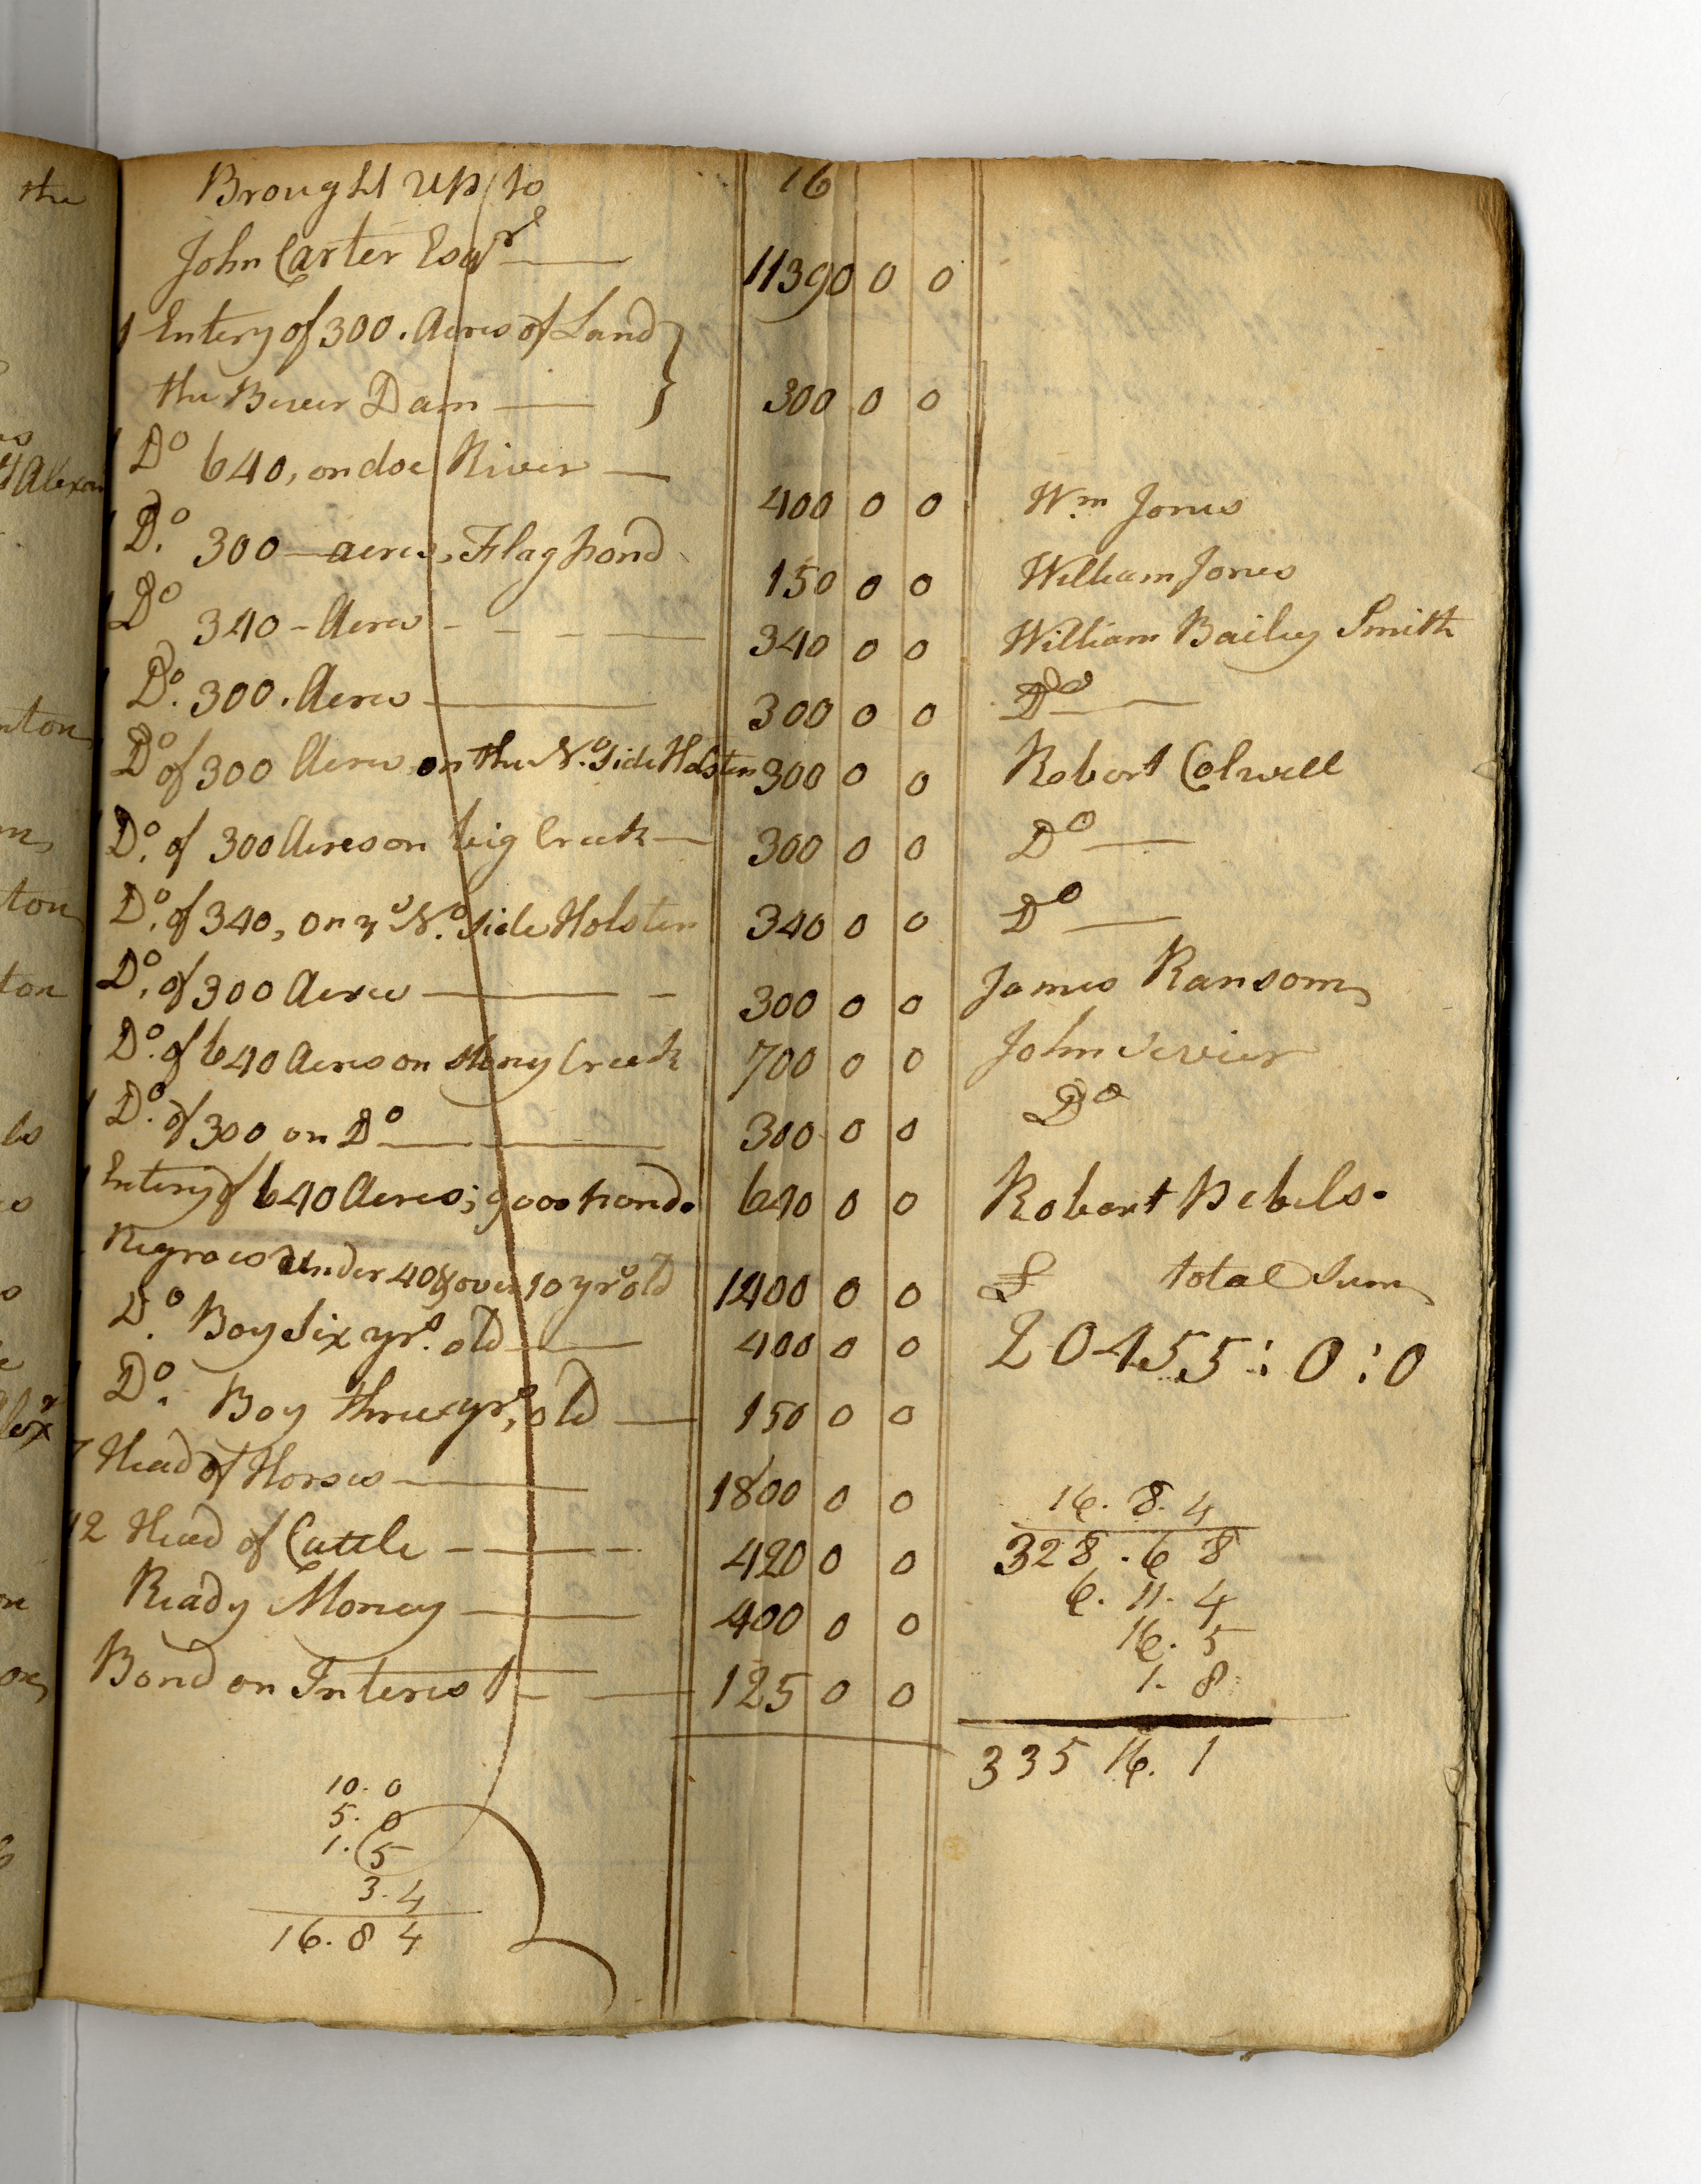 Brought up to 16
John Carter Esqr 11390 0 0
1 Entery of 300. Acres of Land
the Bever Dam 300 0 0
1 Do 640, on doe River 400 0 0 Wm Jones
1 Do. 300 acres, Flag pond 150 0 0 William Jones
1 Do 340 - Acres 340 0 0 William Bailey Smith
1 Do. 300. Acres 300 0 0 Do
Do of 300 Acres on the No. Side Holsten 300 0 0 Robert Colwell
1 Do. of 300 Acres on big Creek 300 0 0 Do
Do. of 340, on ye No. Side Holsten 340 0 0 Do
Do. of 300 Acres 300 0 0 James Ransom
1 Do. of 640 Acres on stony Creek 700 0 0 John Sevier
1 Do. of 300 on Do 300 0 0 Do
1 Entery of 640 Acres; goos pond. 640 0 0 Robert Pebels.
Negroes under 40 & over 10 yrs old 1400 0 0 £ total Sum
Do. Boy Six yrs. old 400 0 0 20455:0:0
1 Do. Boy three yrs, old 150 0 0
7 Head of Horses 1800 0 0
12 Head of Cattle 420 0 0
Ready Money 400 0 0
Bond on Interest 125 0 0
16. 8. 4
328. 6 8
6. 11. 4
16. 5
1. 8
335 16. 1
10. 0
5. 0
1. 5
3. 4
16. 8 4
the
Alexan
nton
ton
ton